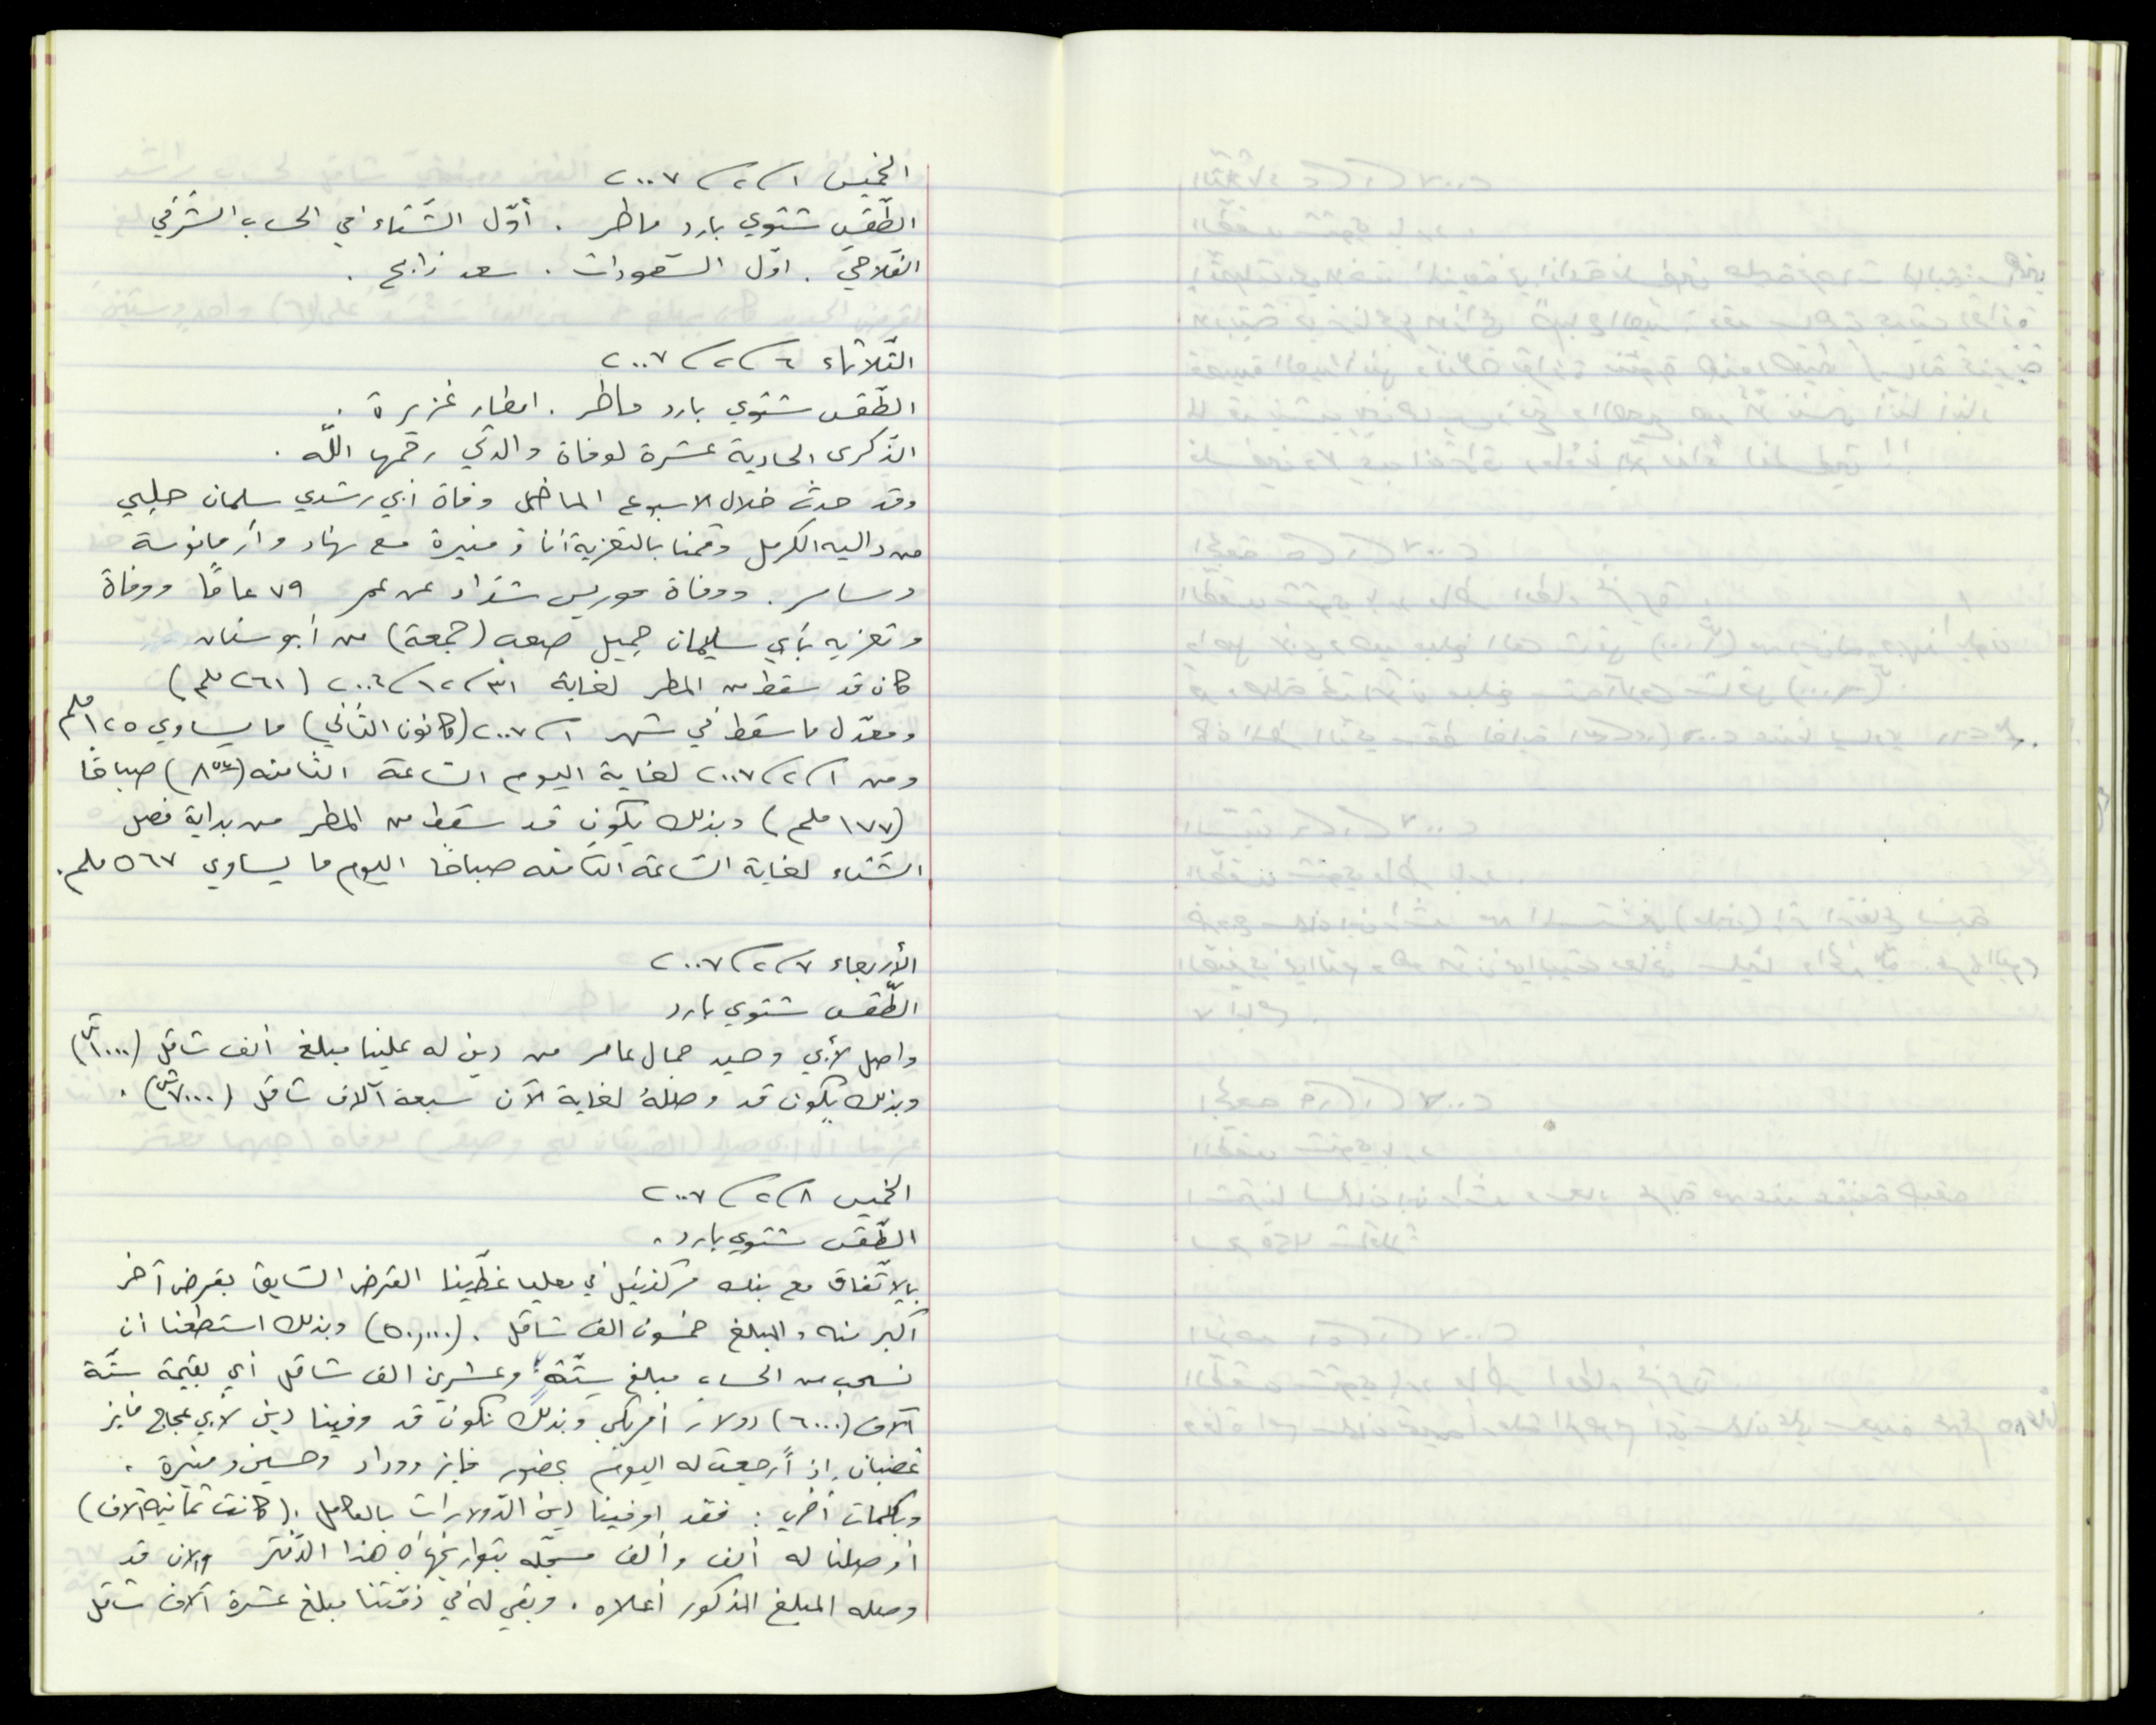 الخميس ١/٢/٢٠٠٧
الطّقس شتوي بارد ماطر . أوّل الشّتاء في الحساب الشّرقي
الفلاحي . اوّل السّعودات . سعد ذابح .
الثّلاثاء ٦/٢/٢٠٠٧
الطّقس شتوي بارد ماطر . امطار غزيرة .
الذّكرى الحادية عشرة لوفاة والدتي رحمها اللّه .
وقد حدث خلال الاسبوع الماضي وفاة ابي رشدي سلمان حلبي
من دالية الكرمل وقمنا بالتعزية أنا و منيرة مع نهاد وأرمانوسة
وسامر . ووفاة موريس شدّاد عن عمر ٧٩ عامًا ووفاة
وتعزية بأبي سليمان جميل صعب (جمعة) من أبو سنان
كان قد سقط من المطر لغاية ٣١/١٢/٢٠٠٦ (٢٦١ ملم)
ومعدّل ما سقط في شهر ١/٢٠٠٧ (كانون الثّاني) ما يساوي ١٢٥ ملم
ومن ١/٢/٢٠٠٧ لغاية اليوم السّاعة الثامنه صباحًا
(١٧٧ ملم) وبذلك يكون قد سقط من المطر من بداية فصل
الشّتاء لغاية السّاعة الثامنه صباحًا اليوم ما يساوي ٥٦٧ ملم .
الأربعاء ٧/٢/٢٠٠٧
الطّقس شتوي بارد
واصل لأبي وحيد جمال عامر من دين له علينا مبلغ ألف شاقل (١٠٠٠ ش)
وبذلك يكون قد وصلهُ لغاية الآن سبعة آلاف شاقل (٧٠٠٠ ش) .
الخميس ٨/٢/٢٠٠٧
الطّقس شتوي بارد .
بالاتّفاق مع بنك مركنتيل في معليا غطّينا القرض السّابق بقرض آخر
أكبر منه والمبلغ خمسون الف شاقل . (٥٠,٠٠٠) وبذلك استطعنا ان
نسحب من الحساب مبلغ ستّة وعشرين الف شاقل أي بقيمة ستّة
آلاف (٦٠٠٠) دولار أمريكي وبذلك نكون قد وفينا دين لأبي عجاج فايز
غضبان إذ أُرجعت له اليوم بحضور فايز ووداد وحسين و منيرة .
وبكلمات أخرى : فقد اوفينا دين الدّولارات بالكامل . (كانت ثمانية آلاف)
أوصلنا له ألف وألف مسجّله بتواريخها في هذا الدّفتر والآن قد
وصله المبلغ المذكور أعلاه . وبقي له في ذمّتنا مبلغ عشرة آلاف شاقل